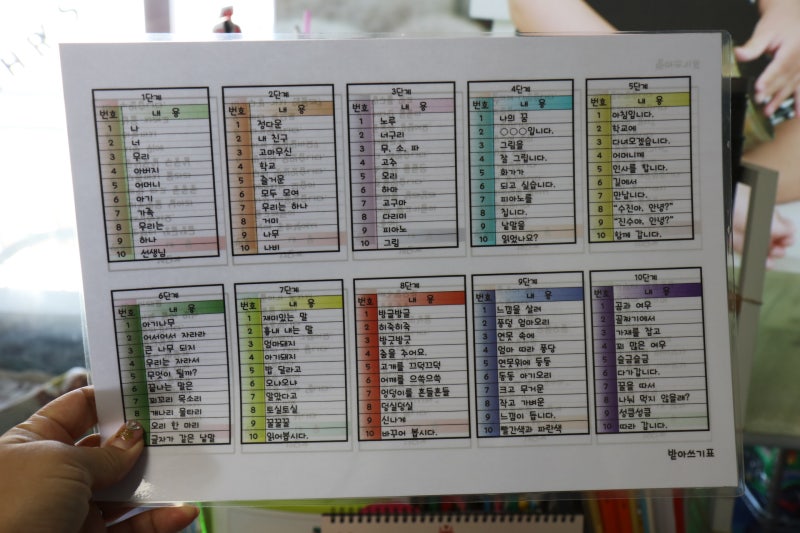 1단계
번호 내 용
1 나
2 너
3 우리
4 아버지
5 어머니
6 아기
7 가족
8 우리는
9 하나
10 선생님
2단계
번호 내 용
1 정다운
2 내 친구
3 고마우신
4 학교
5 즐거운
6 모두 모여
7 우리는 하나
8 거미
9 나무
10 나비
3단계
번호 내 용
1 노루
2 너구리
3 무, 소, 파
4 고추
5 오리
6 하마
7 고구마
8 다리미
9 피아노
10 그림
4단계
번호 내 용
1 나의 꿈
2 ○○○입니다.
3 그림을
4 잘 그립니다.
5 화가가
6 되고 싶습니다.
7 피아노를
8 칩니다.
9 낱말을
10 읽었나요?
5단계
번호 내 용
1 아침입니다.
2 학교에
3 다녀오겠습니다.
4 어머니께
5 인사를 합니다.
6 길에서
7 만납니다.
8 "수진아, 안녕?"
9 "진수야, 안녕?"
10 함께 갑니다.
6단계
번호 내 용
1 아기나무
2 어서어서 자라라
3 큰 나무 되지
4 우리는 자라서
5 무엇이 될까?
6 끝나는 말은
7 꾀꼬리 목소리
8 개나리 울타리
오리 한 마리
글자가 같은 낱말
7단계
번호 내 용
1 재미있는 말
2 흉내 내는 말
3 엄마돼지
4 아기돼지
5 밥 달라고
6 오냐오냐
7 알았다고
8 토실토실
9 꿀꿀꿀
10 읽어봅시다.
8단계
번호 내 용
1 방글방글
2 히죽히죽
3 방긋방긋
4 춤을 추어요.
5 고개를 끄덕끄덕
6 어깨를 으쓱으쓱
7 엉덩이를 흔들흔들
8 덩실덩실
9 신나게
10 바꾸어 봅시다.
9단계
번호 내 용
1 느낌을 살려
2 퐁덩 엄마오리
3 연못 속에
4 엄마 따라 퐁당
5 연못위에 둥둥
6 동동 아기오리
7 크고 무거운
8 작고 가벼운
9 느낌이 듭니다.
10 빨간색과 파란색
10단계
번호 내 용
1 곰과 여우
2 골짜기에서
3 가재를 잡고
4 꾀 많은 여우
5 슬금슬금
6 다가갑니다.
7 꿀을 따서
8 나눠 먹지 않을래?
9 성큼성큼
10 따라 갑니다.
받아쓰기표